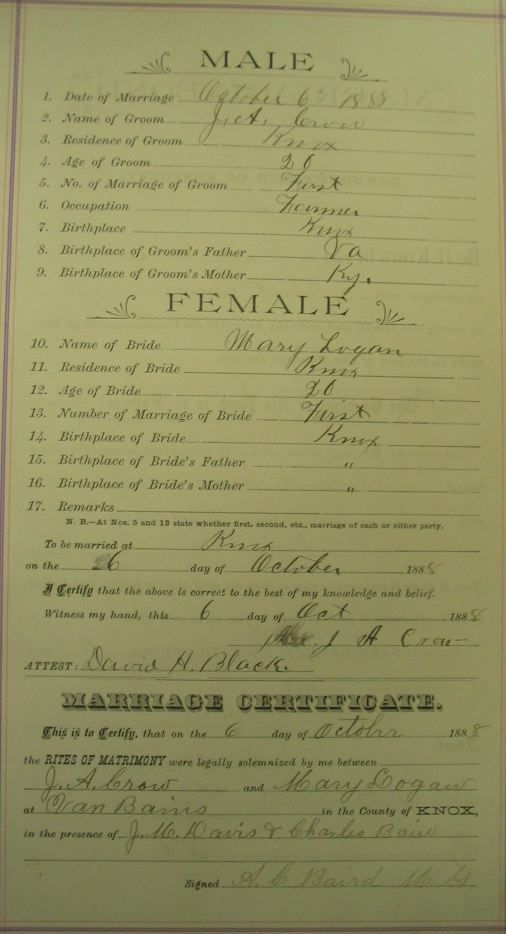 MALE
1. Date of Marriage October 6 1888
2. Name of Groom J. A. Crow
3. Residence of Groom Knox
4. Age of Groom 20
5. No. of Marriage of Groom First
6. Occupation Farmer
7. Birthplace Knox
8. Birthplace of Groom's Father Va
9. Birthplace of Groom's Mother Ky.
FEMALE
10. Name of Bride Mary Logan
11. Residence of Bride Knox
12. Age of Bride 20
13. Number of Marriage of Bride First
14. Birthplace of Bride Knox
15. Birthplace of Bride's Father "
16. Birthplace of Bride's Mother "
17. Remarks
N. B.—At Nos. 5 and 13 state whether first, second, etc., marriage of each or either party.
To be married at Knox
on the 6 day of October 1888
I Certify that the above is correct to the best of my knowledge and belief.
Witness my hand, this 6 day of Oct 1888
J A Crow
ATTEST: David H. Black
MARRIAGE CERTIFICATE.
This is to Certify, that on the 6 day of Octobr 1888
the RITES OF MATRIMONY were legally solemnized by me between
J. A. Crow and Mary Logan
at Van Bains in the County of KNOX,
in the presence of J. M. Davis & Charles
Signed A. C Baird M G